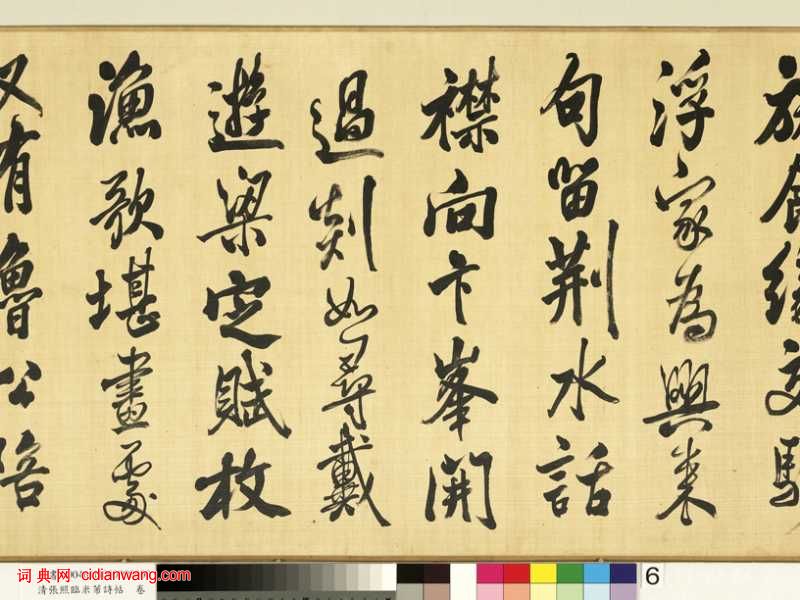 旅食緣交駐
浮家為興來
句留荆水話
襟向卞峯開
過剡如尋戴
遊梁定賦枚
漁歌堪畫處
又有魯公陪
词典网 - cidianwang.com
清張照臨米芾詩帖 卷
6